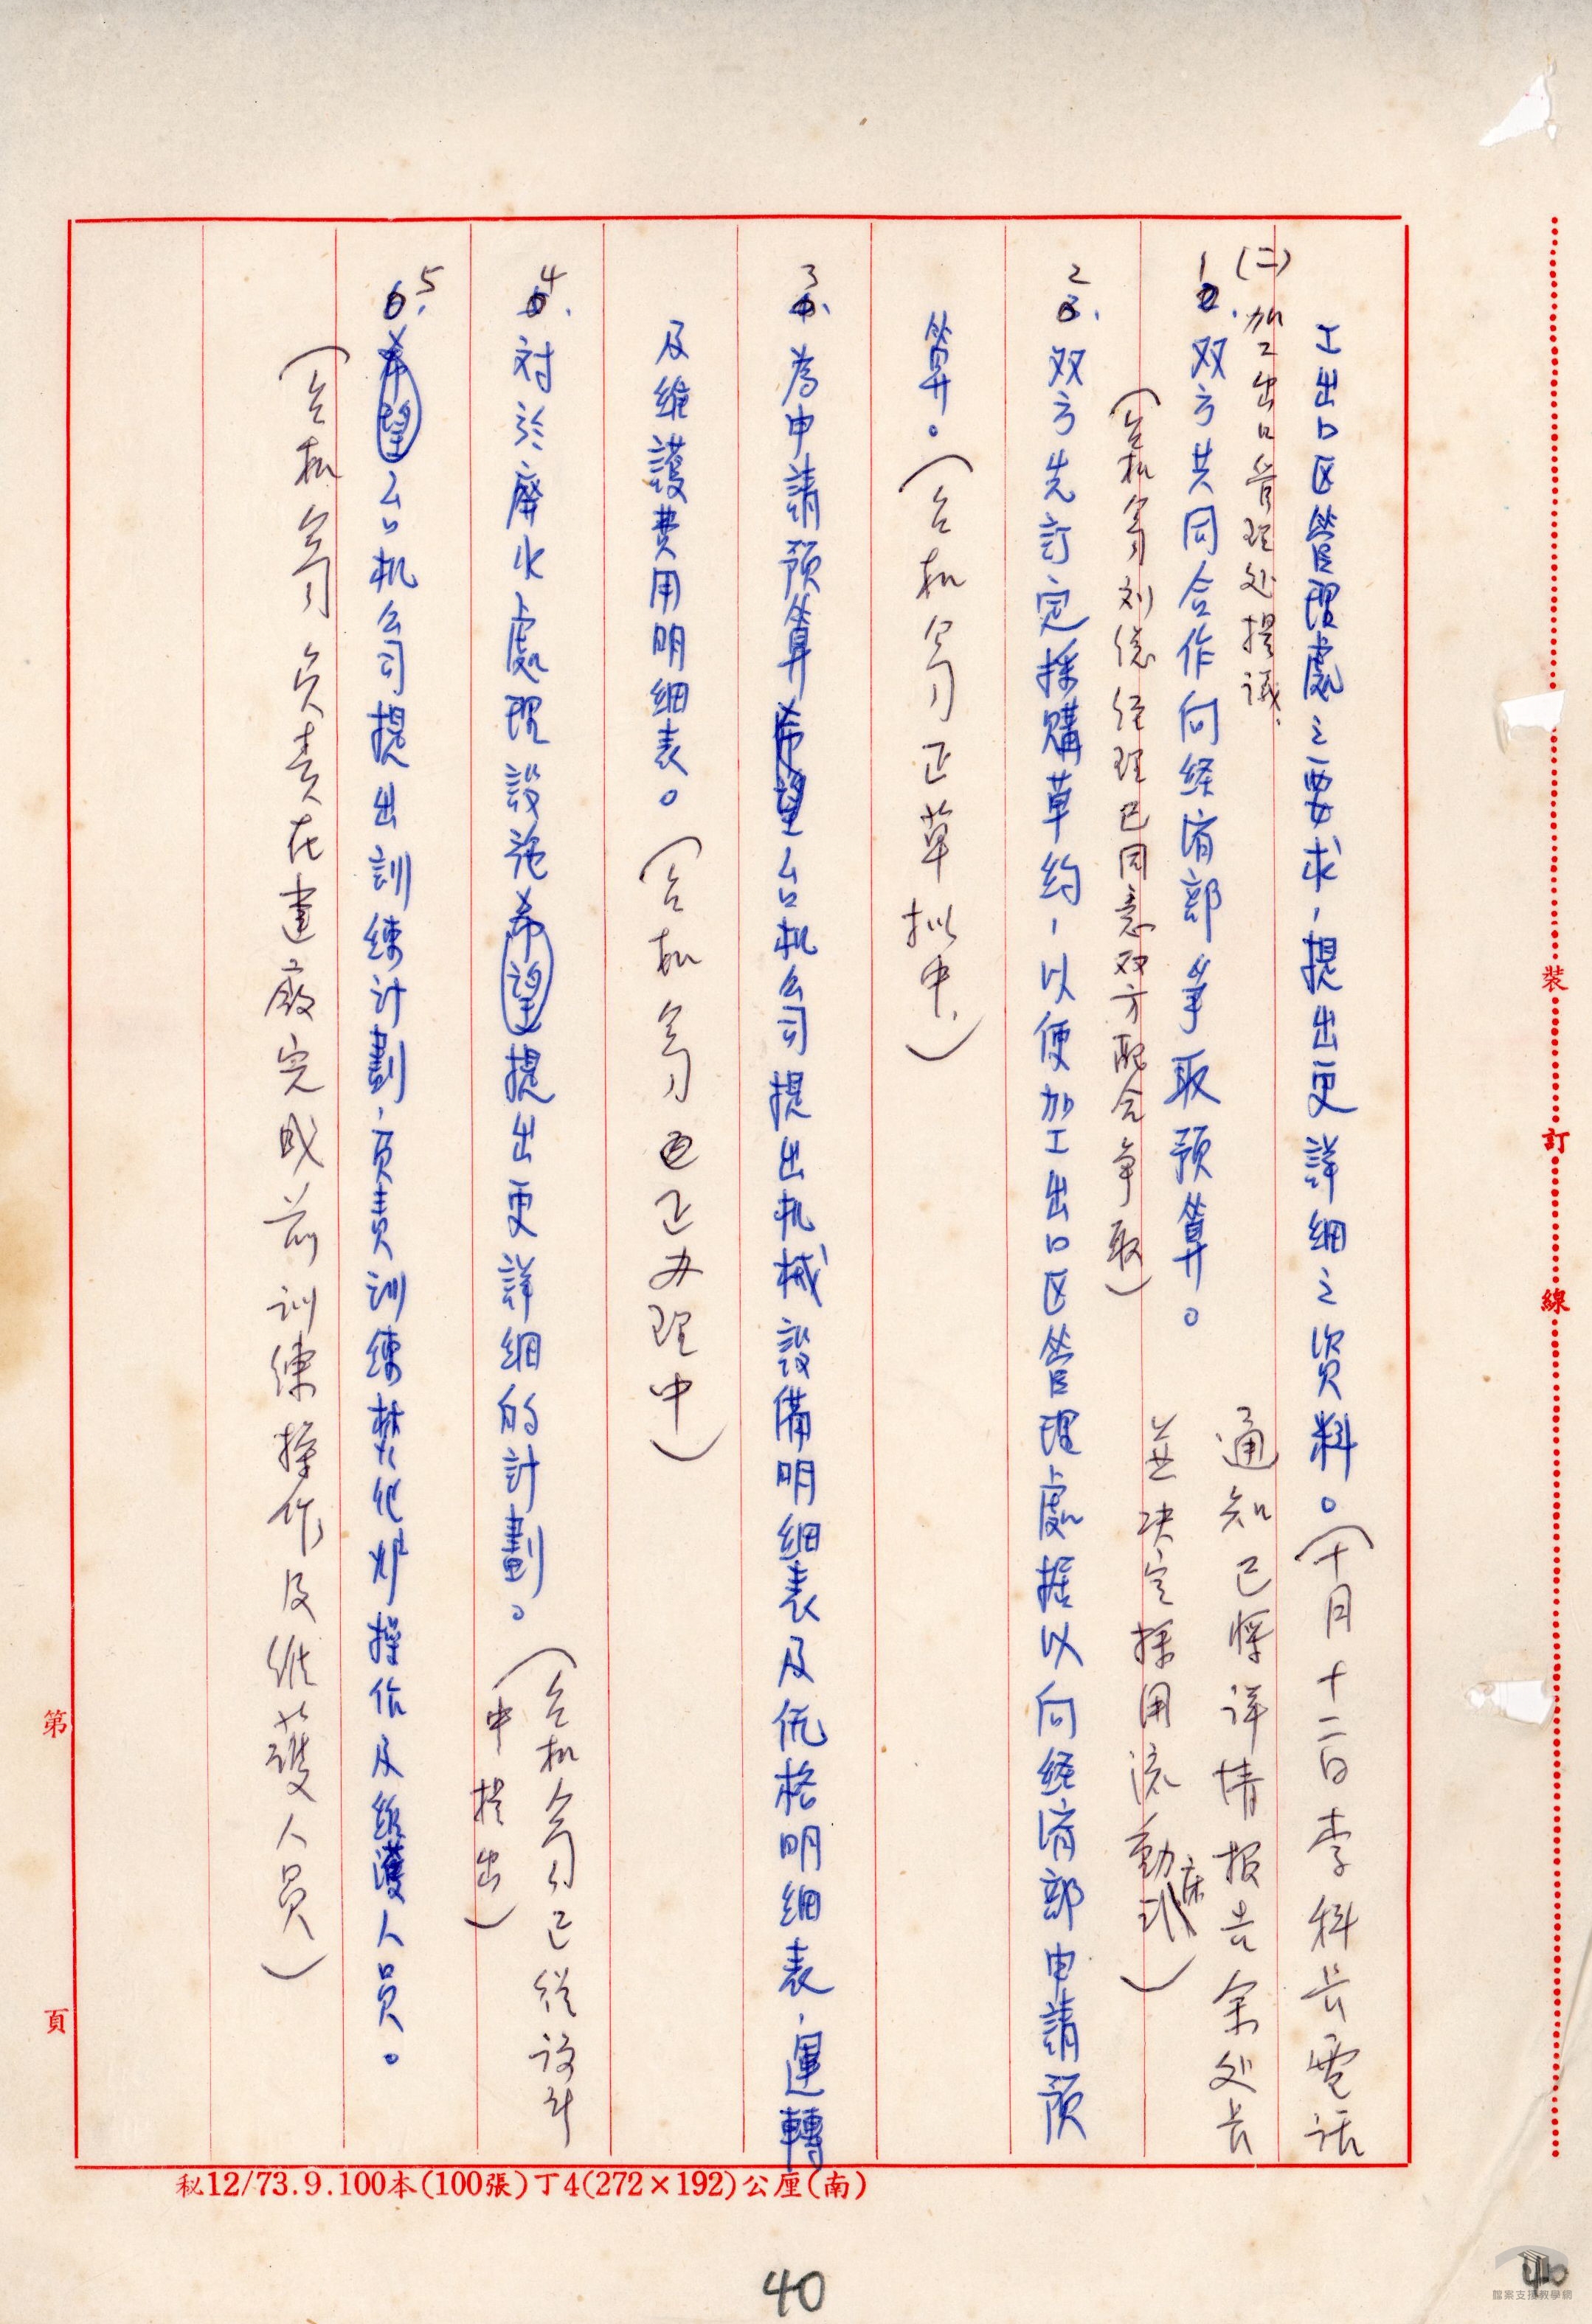 工出口区管理處之要求，提出更詳細之資料。(十月十二日李科長電話
通知已將詳情報告余处長
並决定採用流動床)
(二)加工出口管理处提議.
1.双方共同合作向経済部爭取預算。
(台机公司刘総经理已同意双方配合争取)
2.双方先訂定採購草約，以便加工出口区管理處据以向経済部申請預
算。(台机公司正草拟中.)
3.為申請預算希望台机公司提出机械設備明細表及価格明細表，運轉
及維護費用明細表。(台机公司正办理中)
4.対於廢水處理設施希望提出更詳細的計劃。(台机公司已從設計
中提出)
5.希望台机公司提出訓練計劃，負責訓練焚化炉操作及維護人員。
(台机公司负责在建廠完成前训練操作及維護人員)
裝
訂
線
第
頁
秘12/73.9.100本(100張)丁4(272×192)公厘(南)
40
40
檔案支援教學網